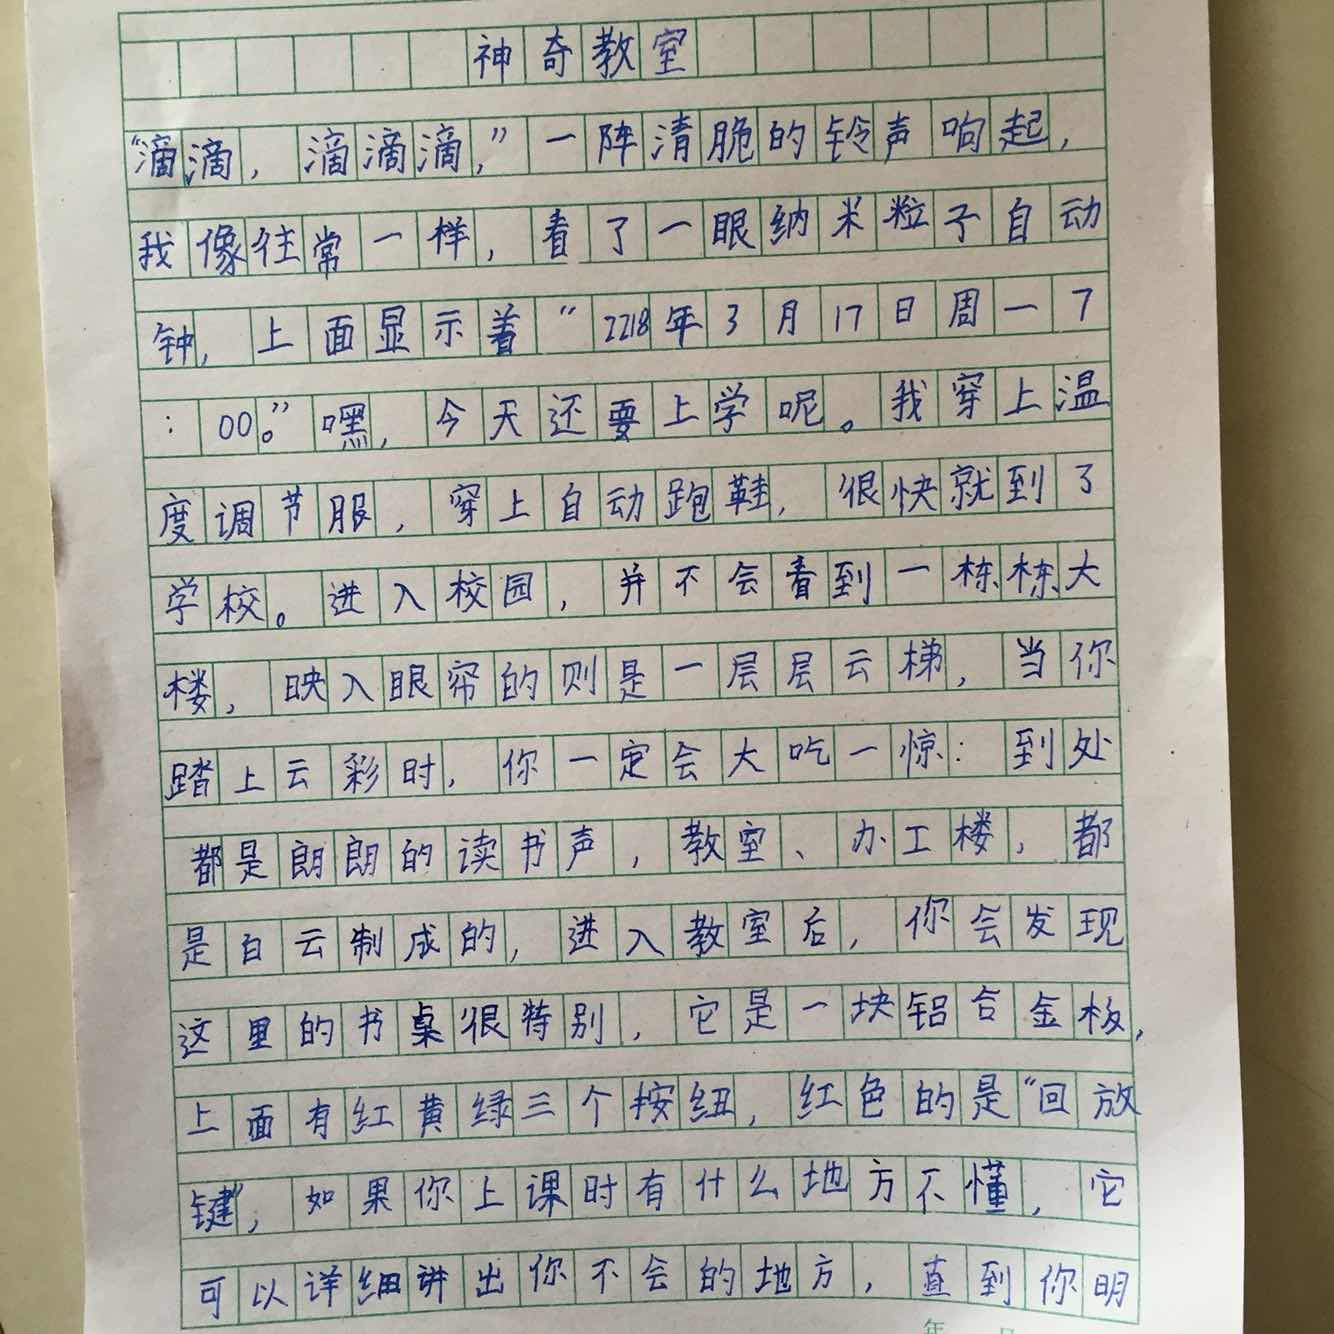 神奇教室
“滴滴，滴滴滴，”一阵清脆的铃声响起，
我像往常一样，看了一眼纳米粒子自动
钟，上面显示着“2218年3月17日周一7
：00。”嘿，今天还要上学呢。我穿上温
度调节服，穿上自动跑鞋，很快就到了
学校。进入校园，并不会看到一栋栋大
楼，映入眼帘的则是一层层云梯，当你
踏上云彩时，你一定会大吃一惊：到处
都是朗朗的读书声，教室、办工楼，都
是白云制成的，进入教室后，你会发现
这里的书桌很特别，它是一块铝合金板，
上面有红黄绿三个按纽，红色的是“回放
键”，如果你上课时有什么地方不懂，它
可以详细讲出你不会的地方，直到你明
年 月